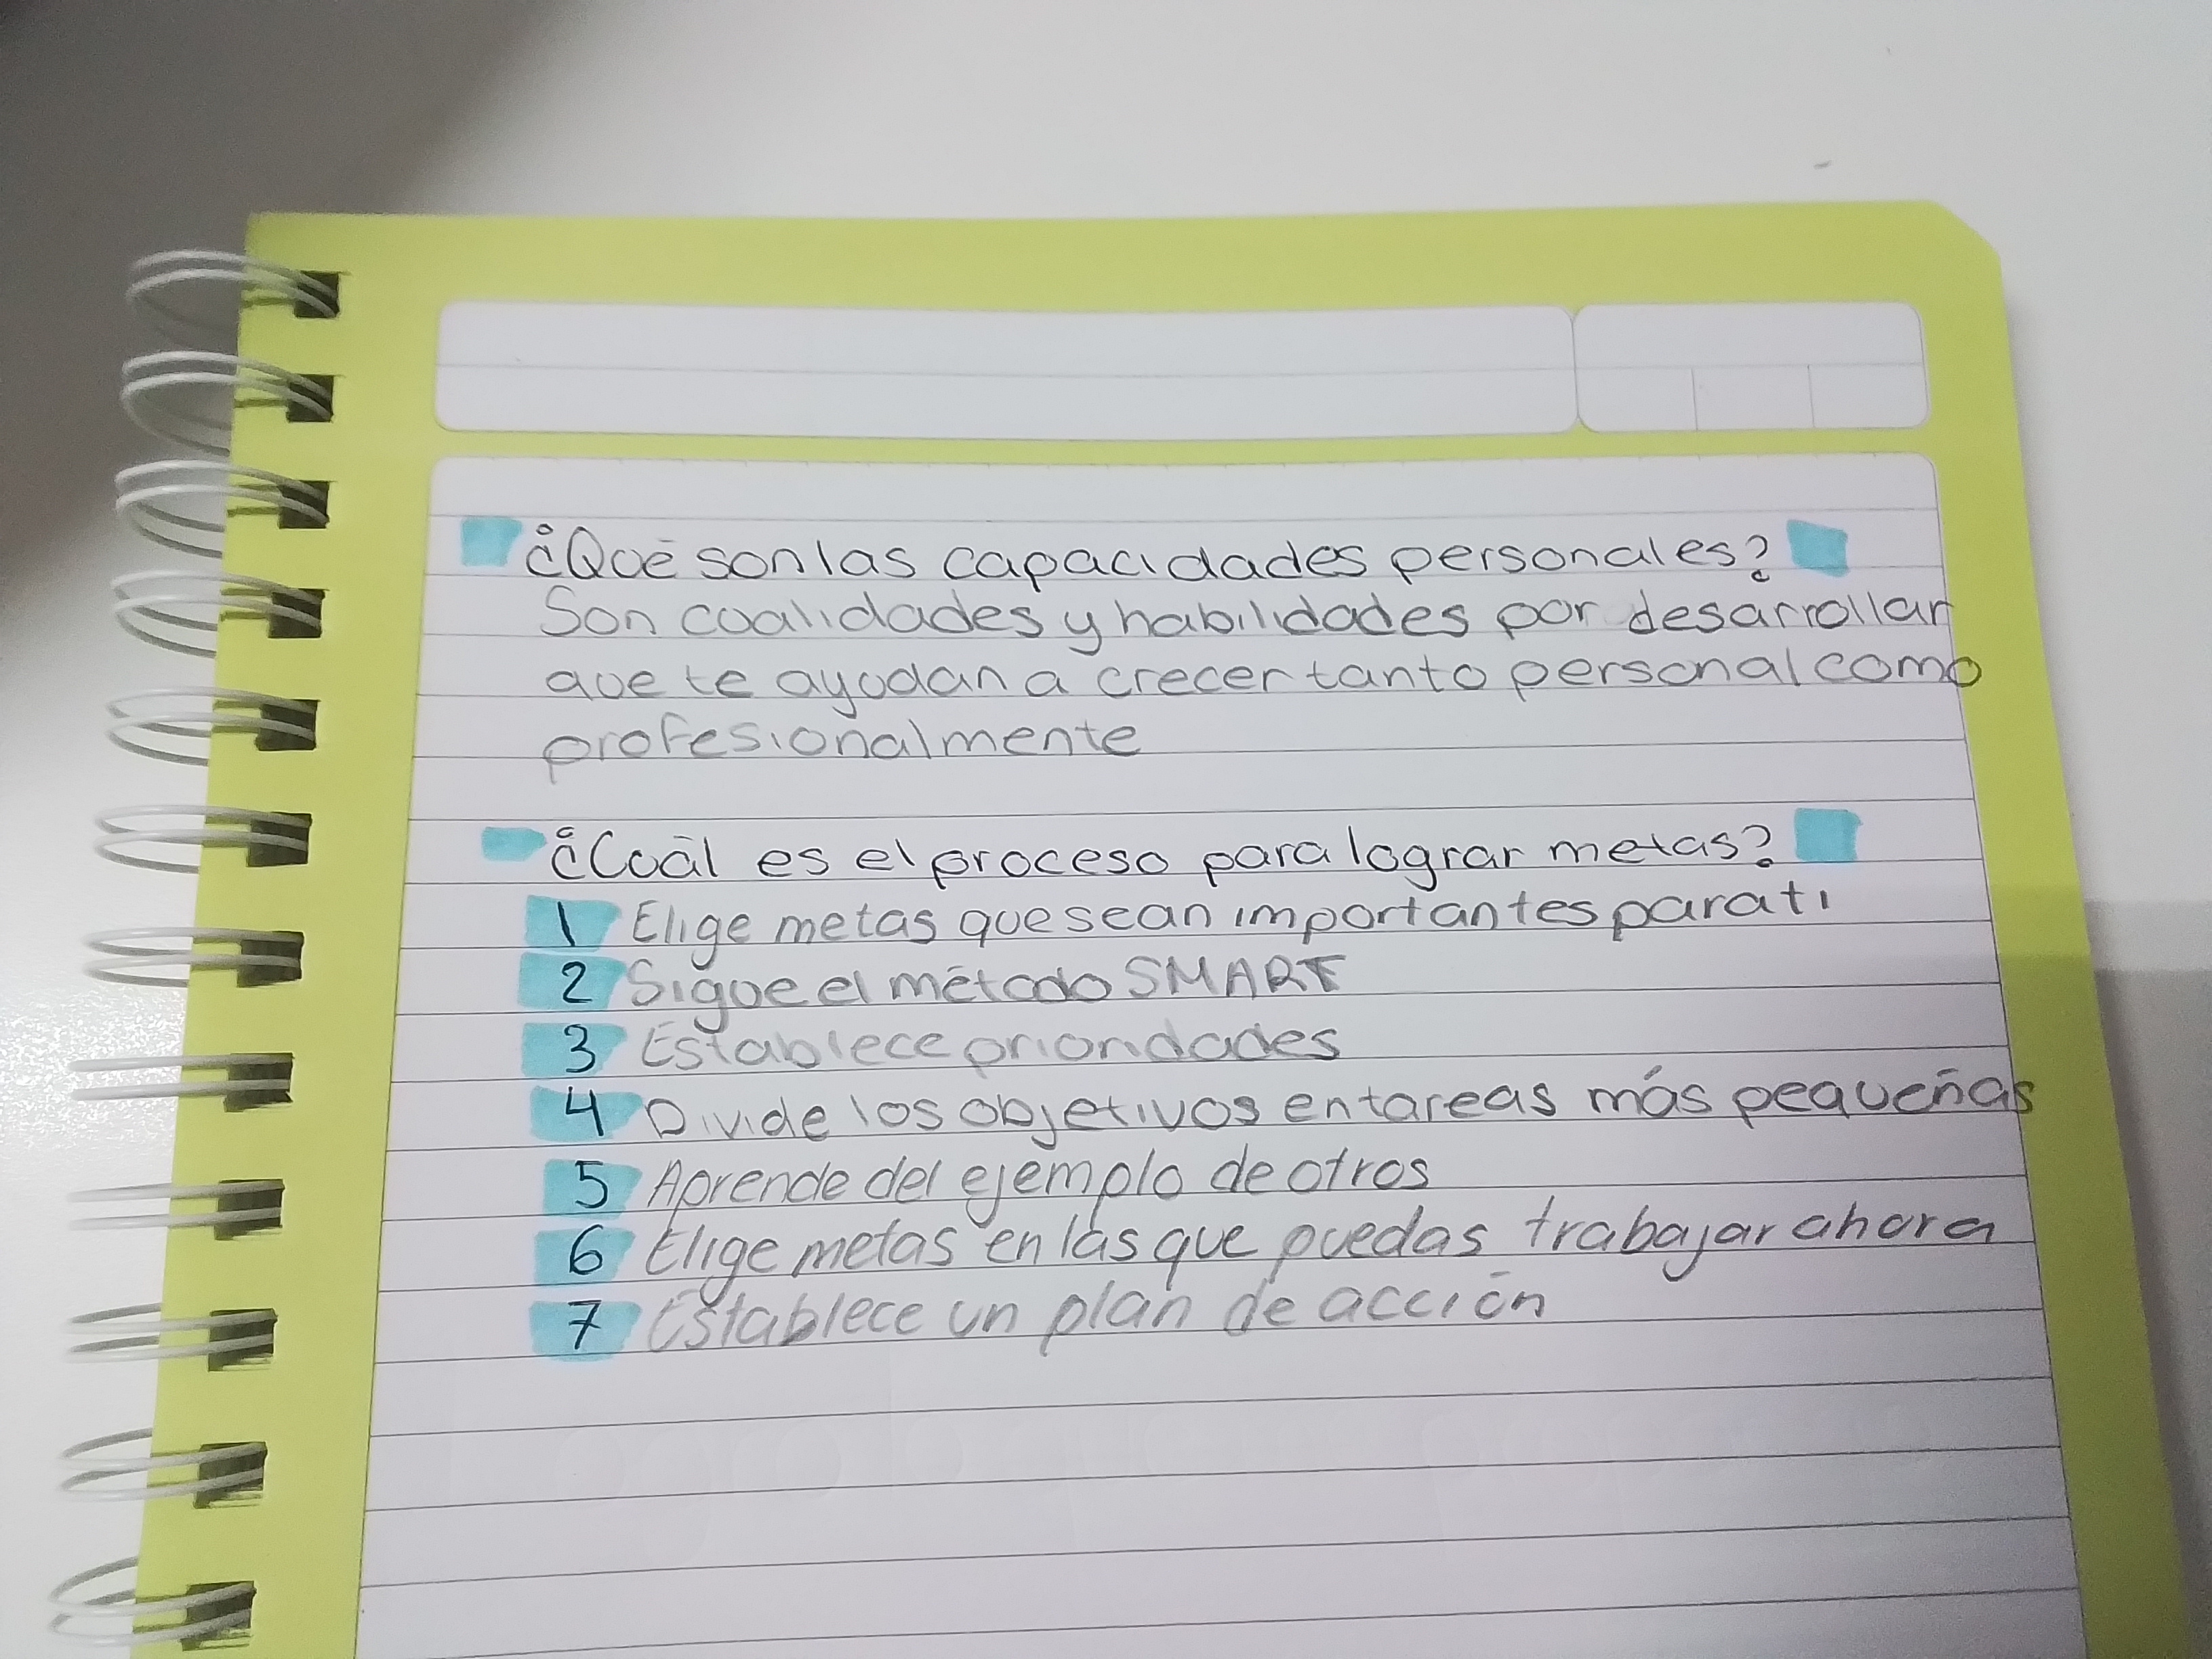 ¿Qué son las capacidades personales?
Son cualidades y habilidades por desarrollar
que te ayudan a crecer tanto personal como
profesionalmente
¿Cuál es el proceso para lograr metas?
1 Elige metas que sean importantes para ti
2 Sigue el método SMART
3 Establece prioridades
4 Divide los objetivos en tareas más pequeñas
5 Aprende del ejemplo de otros
6 Elige metas en las que puedas trabajar ahora
7 Establece un plan de acción